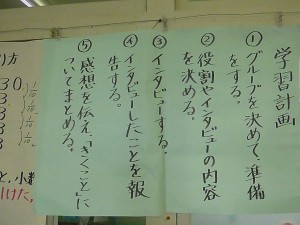 学習計画
①グループを決めて、準備
をする。
②役割やインタビューの内容
を決める。
③インタビューする。
④インタビューしたことを報
告する。
⑤感想を伝え、「きくこと」に
ついてまとめる。
り方
30
1/10
1/10
1/10
と、小数